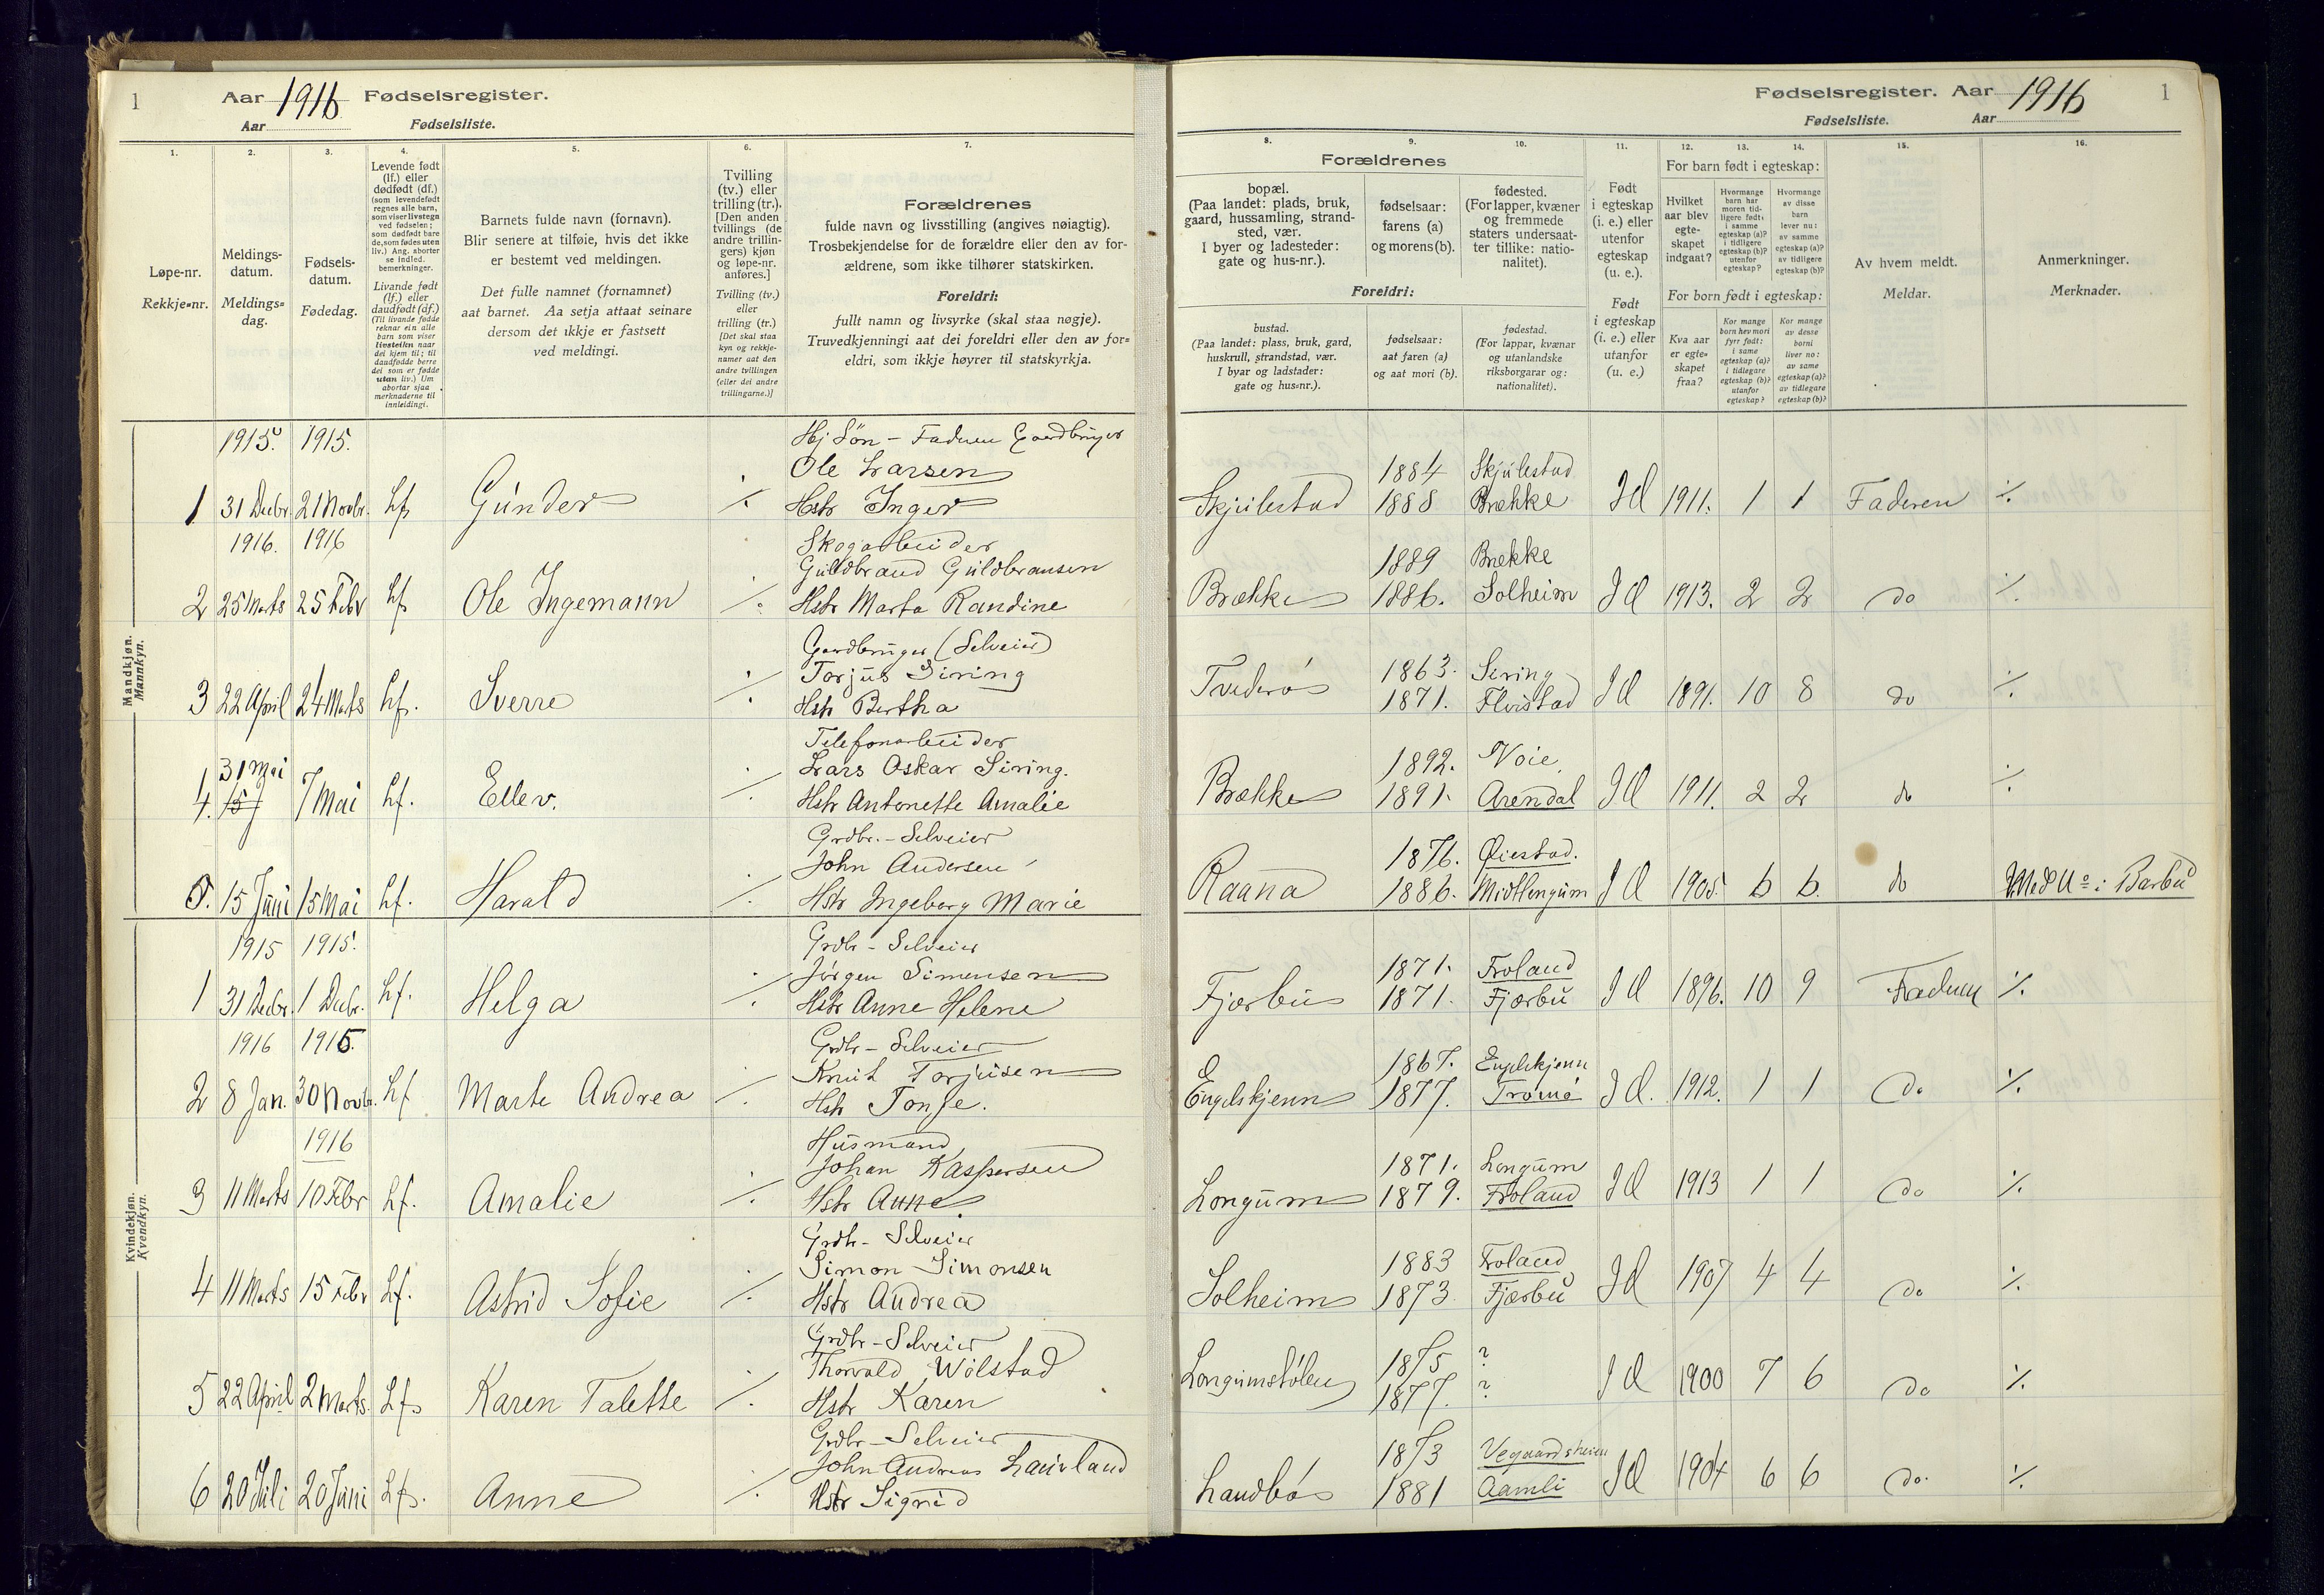 1
Aar 1916 Fødselsregister.
Aar Fødselsliste.
1.
2.
3.
4.
5.
6.
7.
Løpe-nr.
Rekkje=nr.
Meldings-
datum.
Meldings=
dag.
Fødsels-
datum.
Fødedag.
Levende født
(lf.) eller
dødfødt (df.)
(som levendefødt
regnes alle barn,
som viser livstegn
ved fødselen;
som dødfødt bare
de, som fødes uten
liv.) Ang. aborter
se indled.
bemerkninger.
Livande født
(lf.) eller
daudfødt (df.)
(Til livande fødde
reknar ein alle
barn som viser
livsteikn naar
dei kjem til; til
daudfødde berre
dei som er fødde
utan liv.) Um
abortar sjaa
merknaderne til
innleidingi.
Barnets fulde navn (fornavn).
Blir senere at tilføie, hvis det ikke
er bestemt ved meldingen.
Det fulle namnet (fornamnet)
aat barnet. Aa setja attaat seinare
dersom det ikkje er fastsett
ved meldingi.
Tvilling
(tv.) eller
trilling (tr.).
[Den anden
tvillings (de
andre trillin-
gers) kjøn
og løpe-nr.
anføres.]
Tvilling (tv.)
eller
trilling (tr.)
[Det skal staa
kyn og rekkje-
numer aat den
andre tvillingen
(eller dei andre
trillingarne.)]
Forældrenes
fulde navn og livsstilling (angives nøiagtig).
Trosbekjendelse for de forældre eller den av for-
ældrene, som ikke tilhører statskirken.
Foreldri:
fullt namn og livsyrke (skal staa nøgje).
Truvedkjenningi aat dei foreldri eller den av for=
eldri, som ikkje høyrer til statskyrkja.
Mandkjøn.
Mannkyn.
1915. 1915.
Faderen Gaardbruger
Ole Larsen
1 31 Decbr. 21 Novbr. Lf. Gunder ./. Hstr Inger
1916. 1916
Skogarbeider
Guldbrand Guldbransen
2 25 Marts 25 Febr Lf. Ole Ingemann ./. Hstr Marta Randine
Gardbruger (Selveier)
Torjus Siring
3 22 April 24 Marts Lf. Sverre ./. Hstr Bertha
Telefonarbeider
31 Mai
Lars Oskar Siring.
4. 7 Mai Lf. Ellev. ./. Hstr Antonette Amalie
Grdbr. - Selveier
John Andersen
5. 15 Juni 15 Mai Lf. Harald ./. Hstr Ingeborg Marie
Kvindekjøn.
Kvendkyn.
1915 1915.
Grdbr - Selveier
Jörgen Simensen
1 31 Decbr. 1 Decbr. Lf. Helga ./. Hstr Anne Helene
1916 1915.
Grdbr - Selveier
Knut Torjusen
2 8 Jan. 30 Novbr. Lf Marte Andrea ./. Hstr Tonje.
1916
Husmand
Johan Kaspersen
3 11 Marts 10 Febr Lf. Amalie ./. Hstr Anne
Grdbr - Selveier
Simon Simonsen
4 11 Marts 15 Febr Lf. Astrid Sofie ./. Hstr Andrea
Grdbr - Selveier
Thorvald Wölstad
5 22 April 2 Marts. Lf. Karen Talette ./. Hstr Karen
Grdbr - Selveier
John Andreas Lauvland
6 20 Juli 20 Juni Lf. Anne ./. Hstr Sigrid
Fødselsregister. Aar 1916 1
Fødselsliste. Aar
8.
9.
10.
11.
12.
13.
14.
15.
16.
Forældrenes
bopæl.
(Paa landet: plads, bruk,
gaard, hussamling, strand-
sted, vær.
I byer og ladesteder:
gate og hus-nr.).
fødselsaar:
farens (a)
og morens (b).
fødested.
(For lapper, kvæner
og fremmede
staters undersaat-
ter tillike: natio-
nalitet).
Foreldri:
bustad.
(Paa landet: plass, bruk, gard,
huskrull, strandstad, vær.
I byar og ladstader:
gate og hus=nr.).
fødselsaar:
aat faren (a)
og aat mori (b).
fødestad.
(For lappar, kvænar
og utanlandske
riksborgarar og:
nationalitet).
Født
i egteskap
(i. e.) eller
utenfor
egteskap
(u. e.).
Født
i egteskap
(i. e.) eller
utanfor
(u. e.)
For barn født i egteskap:
Hvilket
aar blev
egte-
skapet
indgaat?
Hvormange
barn har
moren tid-
ligere født:
i samme
egteskap (a)?
i tidligere
egteskap (b)?
utenfor
egteskap?
Hvormange
av disse
barn
lever nu:
av samme
egteskap (a)?
av tidligere
egteskap (b)?
For born født i egteskap:
Kva aar
er egte=
skapet
fraa?
Kor mange
born hev mori
fyrr født:
i same
egteskap (a)?
i tidlegare
egteskap (b)?
utanfor
egteskap?
Kor mange
av desse
borni
liver no:
av same
egteskap (a)?
av tidlegare
egteskap (b)?
Av hvem meldt.
Meldar.
Anmerkninger.
Merknader.
1884 Skjulestad
Skjulestad 1888 Brække 1911. 1 1 Faderen ./.
1889 Brække
Brække 1886. Solheim 1913. 2 2 do ./.
1863. Siring
Tvederøs 1871. Flvistad 1891. 10 8 do ./.
1892. Noie
Brække 1891. Arendal 1911. 2 2 do ./.
1876. Øiestad.
Raana 1886. Midtlongum 1905. 6 6. do i Barbu
1871. Froland
Fjærbu 1871. Fjærbu 1896. 10 9 Faderen ./.
1867. Engelskjenn
Engelskjenn 1877. Tromø 1912. 1 1 do ./.
1871. Longum
Longum 1879. Froland 1913 1 1 do ./.
1883 Froland
Solheim 1873 Fjærbu 1907 4 4 do ./.
1875 ?
Longumstølen 1877. ? 1900 7 6 do ./.
1873 Vegaardsheien
Landbøs 1881 Aamli 1904 6 6 do. ./.